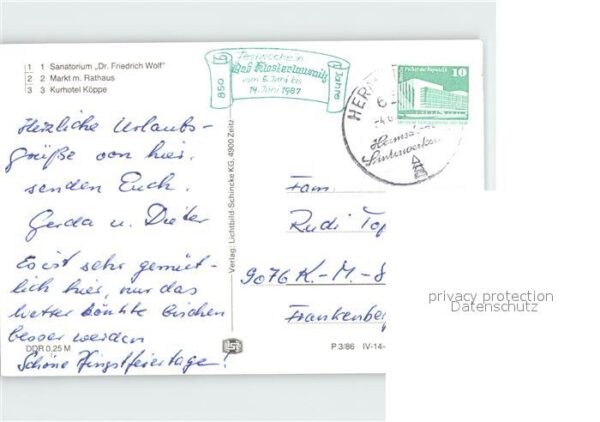 1 1 Sanatorium „Dr. Friedrich Wolf"
2 2 Markt m. Rathaus
3 3 Kurhotel Köppe
850 Jahre
Festwoche in
Bad Klosterlausnitz
vom 6. Juni bis
14. Juni 1987
Palast der Republik 10
HERM
Herzliche Urlaubs-
grüße von hier.
senden Euch.
Gerda u. Dieter
Es ist sehr gemüt-
lich hier, nur das
Wetter könnte bischen
besser werden
Schöne Pfingstfeiertage!
DDR 0,25 M
Verlag: Lichtbild-Schincke KG, 4900 Zeitz
Fam.
Rudi Top
9076 K.-M.-S
Frankenber
P 3/86 IV-14-
privacy protection
Datenschutz